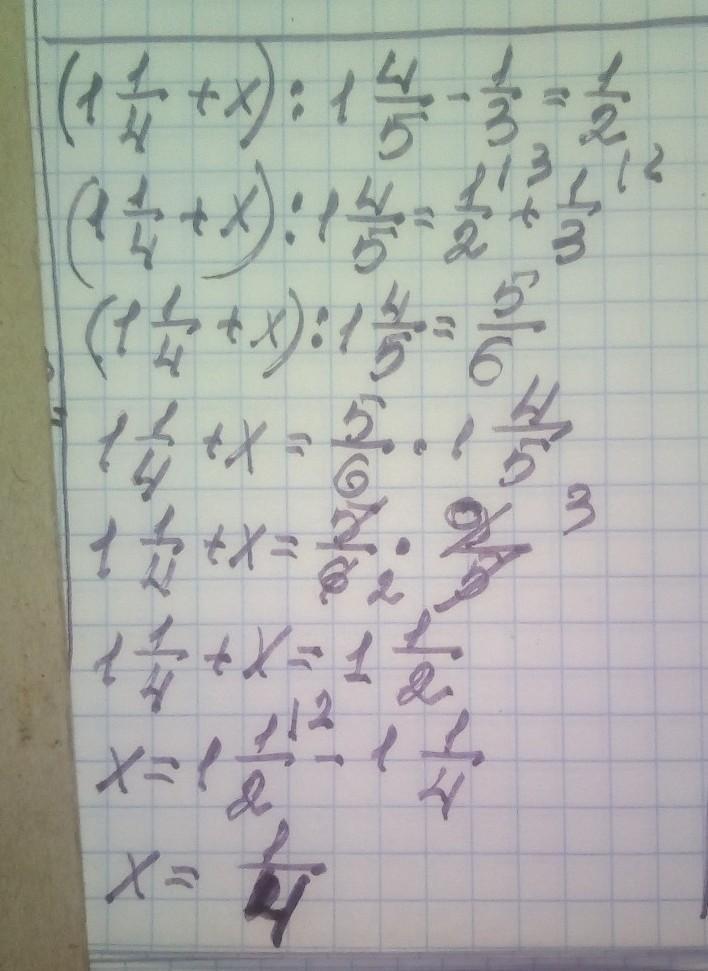 (1 1/4 + x) : 1 4/5 - 1/3 = 1/2
(1 1/4 + x) : 1 4/5 = 1/2 |3 + 1/3 |2
(1 1/4 + x) : 1 4/5 = 5/6
1 1/4 + x = 5/6 · 1 4/5
1 1/4 + x = 5/6 2 · 9/5 3
1 1/4 + x = 1 1/2
x = 1 1/2 |2 - 1 1/4
x = 1/4